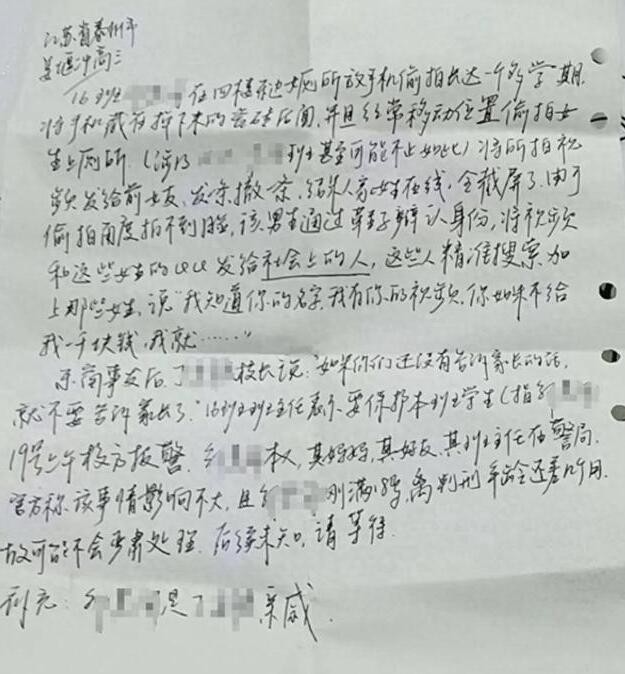 江苏省泰州市
姜堰中高三
16班 在四楼 女厕所放手机偷拍长达一个多学期.
将手机藏在掉下来的瓷砖后面,并且经常移动位置偷拍女
生上厕所.(涉及 班甚至可能不止如此)将所拍视
频发给前女友,发一条撤一条,结果人家女生在线,全截屏了.由于
偷拍角度拍不到脸,该男生通过鞋子辨认身份,将视频
和这些女生的QQ发给社会上的人,这些人精准搜索加
上那些女生,说“我知道你的名字我有你的视频.你如果不给
我一千块钱,我就……”
东窗事发后,丁 校长说:“如果你们还没有告诉家长的话,
就不要告诉家长了.”16班班主任表示要保护本班学生(指
19号上午校方报警. 本权,其妈妈,其好友,其班主任在警局.
官方称该事情影响不大,且 刚满 离判刑年龄还差 月.
故可能不会严肃处理.后续未知,请等待.
补充: 是丁 亲戚.